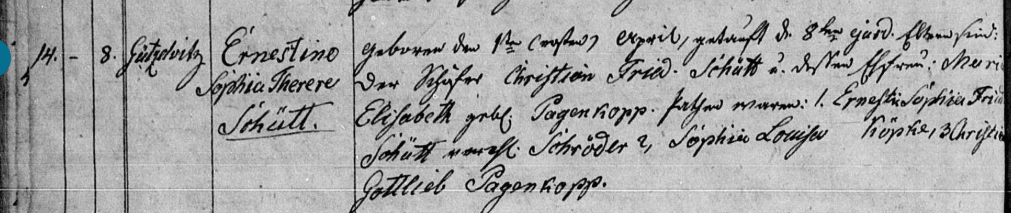 14. – 8. Gützdvitz Ernestine geboren den 1ten (ersten) April, getauft d. 8ten ejusd. Eltern sind:
Sophia Therese der Schäfer Christian Fried. Schütt u. dessen Ehefrau: Mari
Schütt. Elisabeth geb. Pagenkopp. Pathen waren: 1. Ernestin Sophia Fried
Schütt verehl. Schröder 2, Sophia Louisa Köpke, 3 Christi
Gottlieb Pagenkopp.